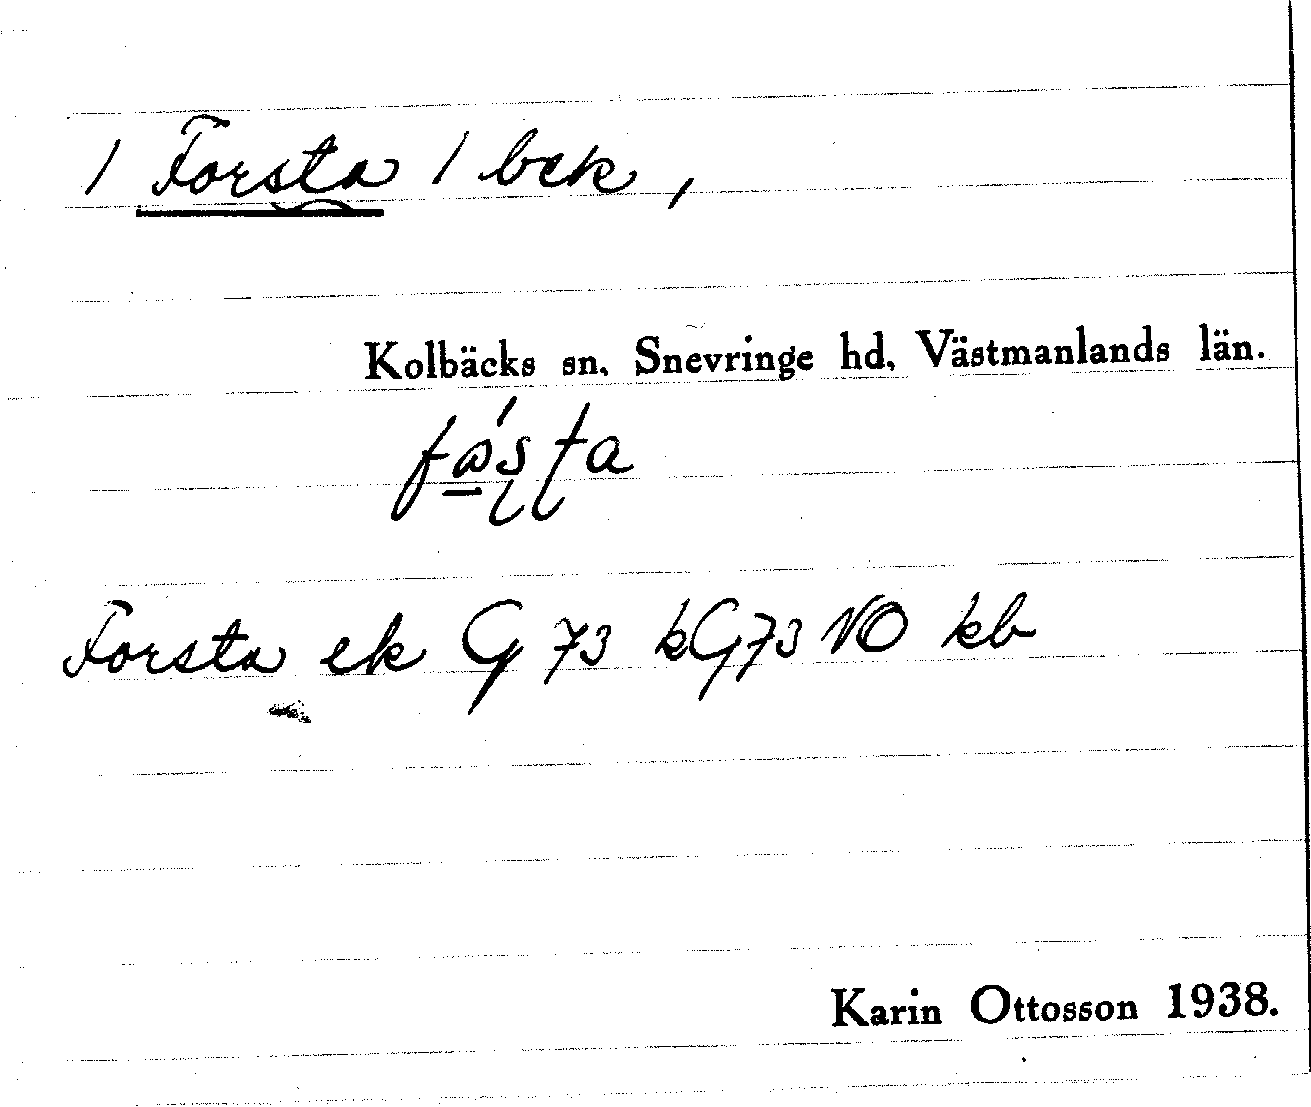 / Forsta / bek,
Kolbäcks sn. Snevringe hd. Västmanlands län.
Forsta ek G 73 kG73 NO kb
Karin Ottosson 1938.